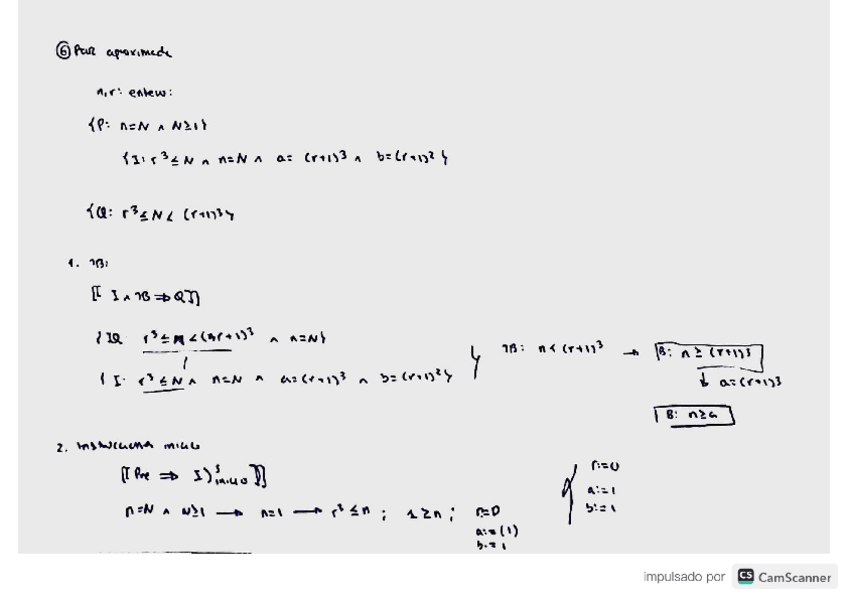 ⑥ Raíz aproximada
n,r: entero;
{P: n=N ∧ N≥1}
{I: r³≤N ∧ n=N ∧ a=(r+1)³ ∧ b=(r+1)²}
{Q: r³≤N<(r+1)³}
1. ¬B:
[[ I ∧ ¬B ⇒ Q ]]
r³≤N<(r+1)³ ∧ n=N}
{I: r³≤N ∧ n=N ∧ a=(r+1)³ ∧ b=(r+1)²}
¬B: n<(r+1)³ → B: n≥(r+1)³
↓ a=(r+1)³
B: n≥a
2. 
[[Pre ⇒ I)
n=N ∧ N≥1 → n≥1 → r³≤n ; 1≥n ; r=0
a:=(1)
b:=1
r:=0
a:=1
b:=1
impulsado por CS CamScanner